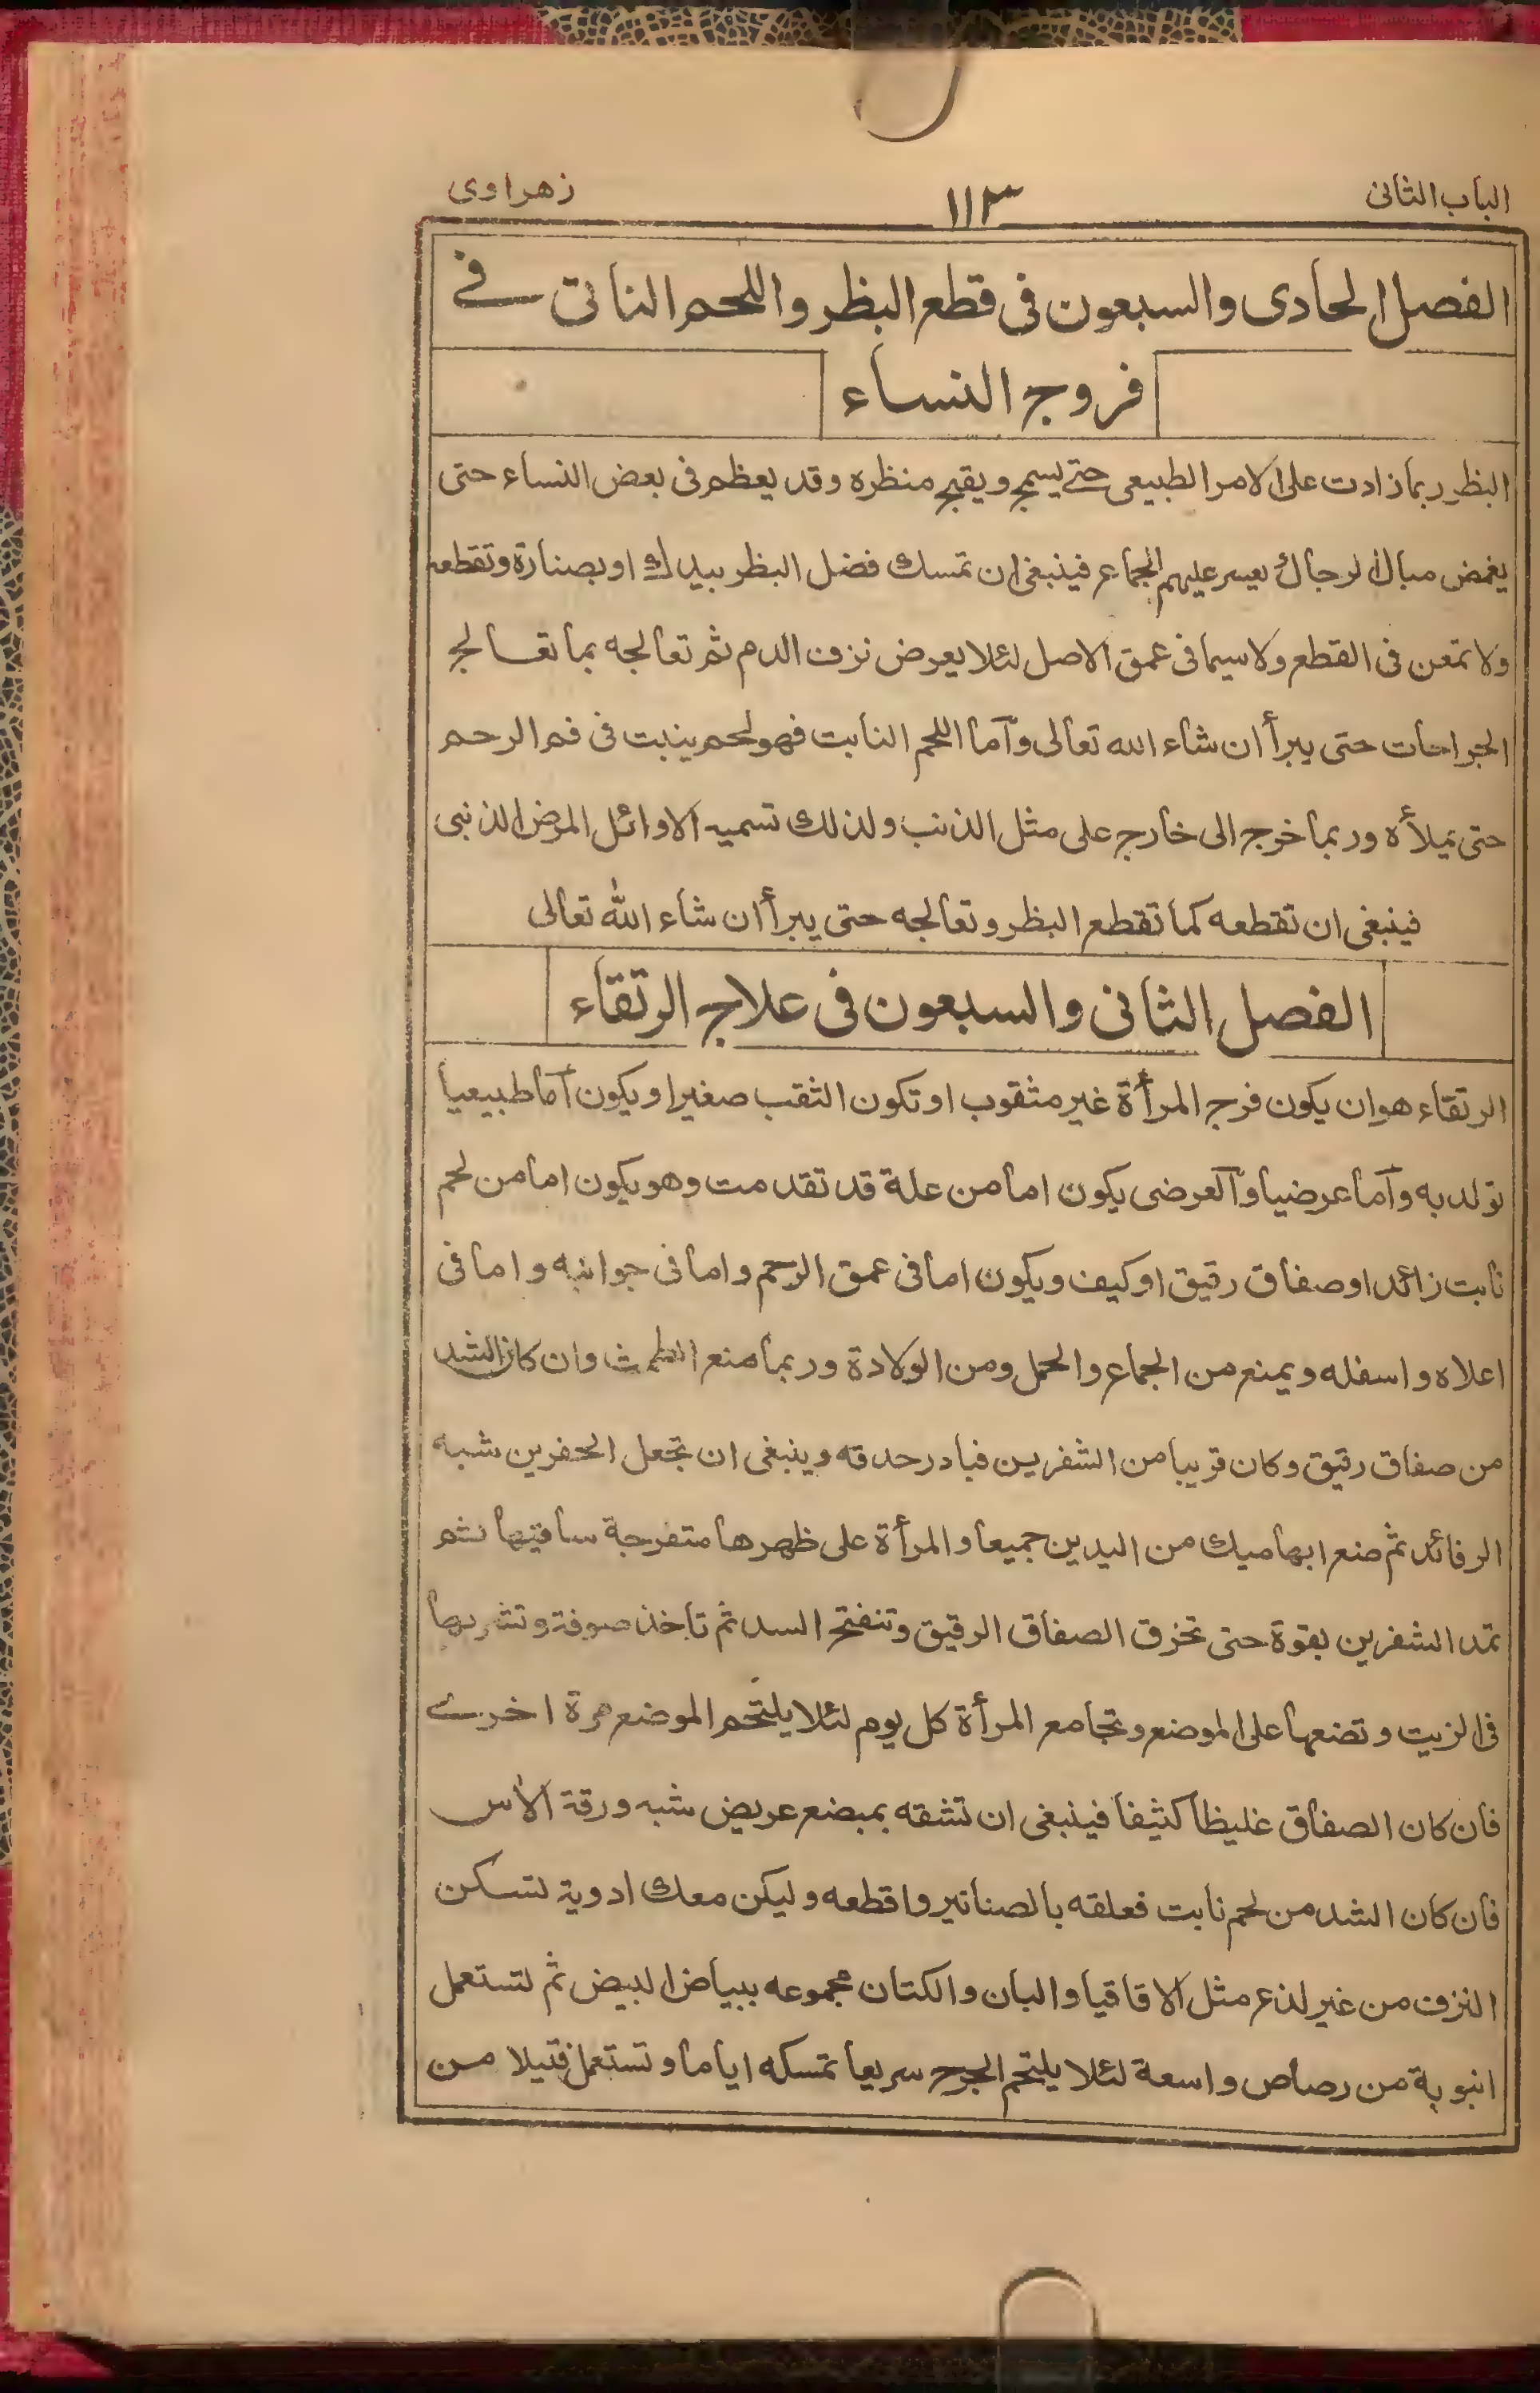 الباب الثانى ١١٣ زهراوى
الفصل الحادى والسبعون فى قطع البظر واللحم الناتى فے
فروج النساء
البظر ربما زادت على الامر الطبيعى حتے يسمج ويقبح منظره وقد يعظم فى بعض النساء حتى
يغمض مبال الرجال يعيسر عليهم الجماع فينبغى ان تمسك فضل البظر بيدك او بصنارة وتقطعه
ولا تمعن فى القطع ولا سيما فى عمق الاصل لئلا يعرض نزف الدم ثم تعالجه بما تعالج
الجراحات حتى يبرأ ان شاء الله تعالى وآما اللحم النابت فهو لحم ينبت فى فم الرحم
حتى يملأه وربما خرج الى خارج على مثل الذنب ولذلك تسميه الاوائل المرض الذنبى
فينبغى ان تقطعه كما تقطع البظر وتعالجه حتى يبرأ ان شاء الله تعالى
الفصل الثانى والسبعون فى علاج الرتقاء
الرتقاء هو ان يكون فرج المرأة غير مثقوب او تكون الثقب صغيرا ويكون آما طبيعيا
تولد به وآما عرضيا وآلعرضى يكون اما من علة قد تقدمت وهو يكون اما من لحم
نابت زائد او صفاق رقيق او كيف ويكون اما فى عمق الرحم واما فى جوانبه واما فى
اعلاه واسفله ويمنع من الجماع والحمل ومن الولادة وربما منع الطمث وان كان الشد
من صفاق رقيق وكان قريبا من الشفرين فبادر حدقه وينبغى ان تجعل الحفرين شبه
الرفائد ثم صنع ابهاميك من اليدين جميعا والمرأة على ظهرها متفرجة ساقيها ثم
تمد الشفرين بقوة حتى تخرق الصفاق الرقيق وتنفتح السد ثم تاخذ صوفة وتشربها
فى الزيت وتضعها على الموضع وتجامع المرأة كل يوم لئلا يلتحم الموضع مرة اخرے
فان كان الصفاق غليظا كثيفا فينبغى ان تشقه بمبضع عريض شبه ورقة الآس
فان كان الشد من لحم نابت فعلقه بالصنانير واقطعه وليكن معك ادوية لتسكن
النزف من غير لذع مثل الاقاقيا والبان والكتان مجموعه ببياض البيض ثم لتستعمل
انبوبة من رصاص واسعة لئلا يلتحم الجرح سريعا تمسكه اياما وتستعمل فتيلا من